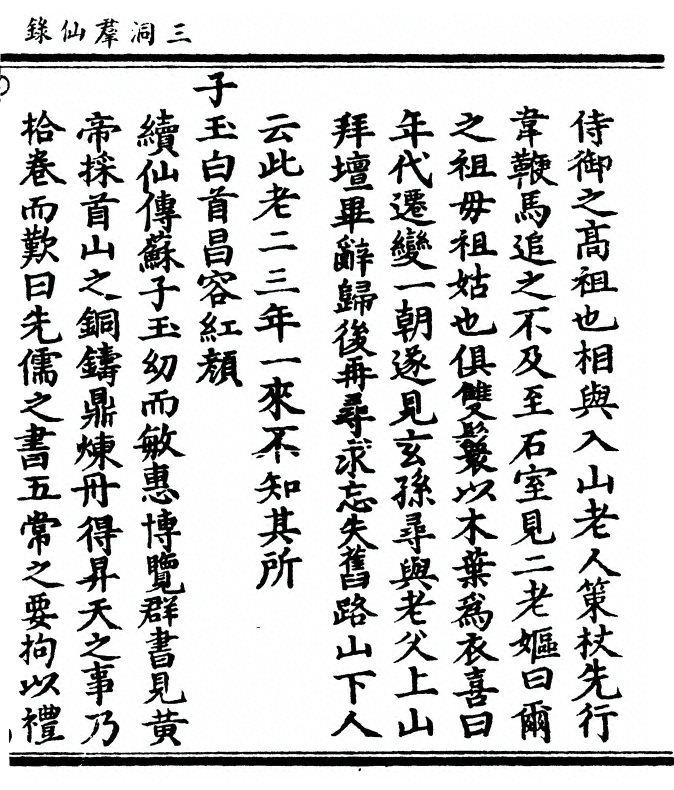 三洞羣仙錄
侍御之髙祖也相與入山老人策杖先行
韋鞭馬追之不及至石室見二老嫗曰爾
之祖毋祖姑也俱雙鬟以木葉爲衣喜曰
年代遷變一朝遂見玄孫尋與老父上山
拜壇畢辭歸後再尋求忘失舊路山下人
云此老二三年一來不知其所
子玉白首昌容紅顔
續仙傳蘇子玉幼而敏惠博覽群書見黃
帝採首山之銅鑄鼎煉丹得昇天之事乃
拾卷而歎曰先儒之書五常之要拘以禮